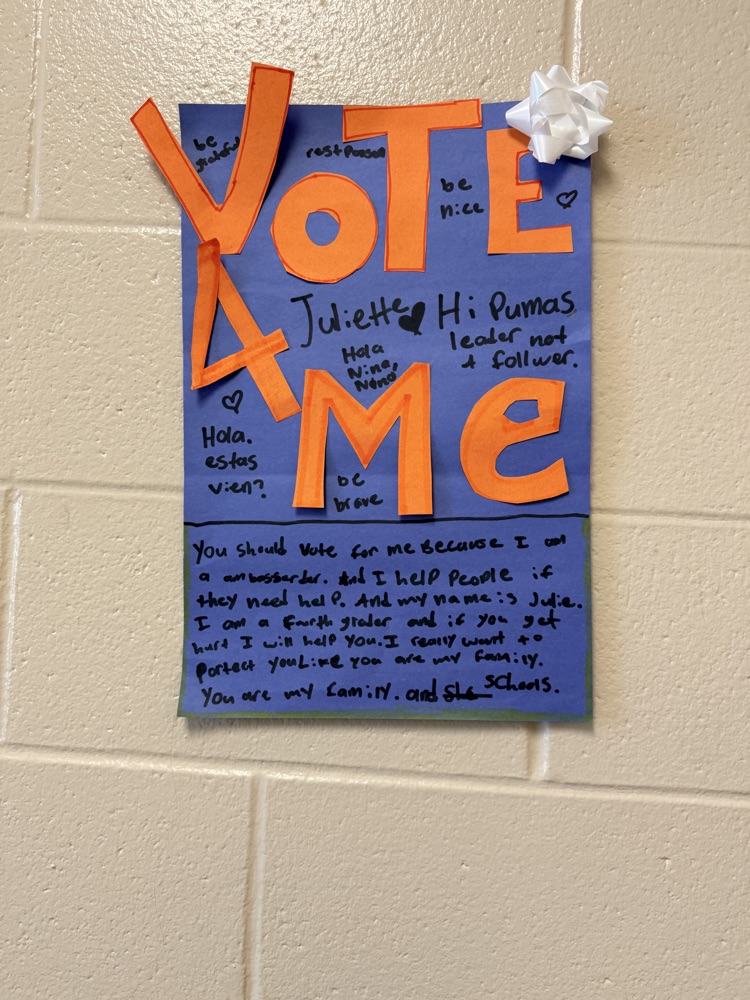 VOTE
be
grateful
responson
be
nice
4
Juliette
Hi Pumas
leader not
a follwer.
Hola
Nina,
Me
Hola.
estas
vien?
be
brave
You should vote for me Because I am
a ambasserder. And I help People if
they need help. And my name is Julie.
I am a fourth grader and if you get
hurt I will help you. I really want to
Portect you Like you are my family.
You are my family. and schools.